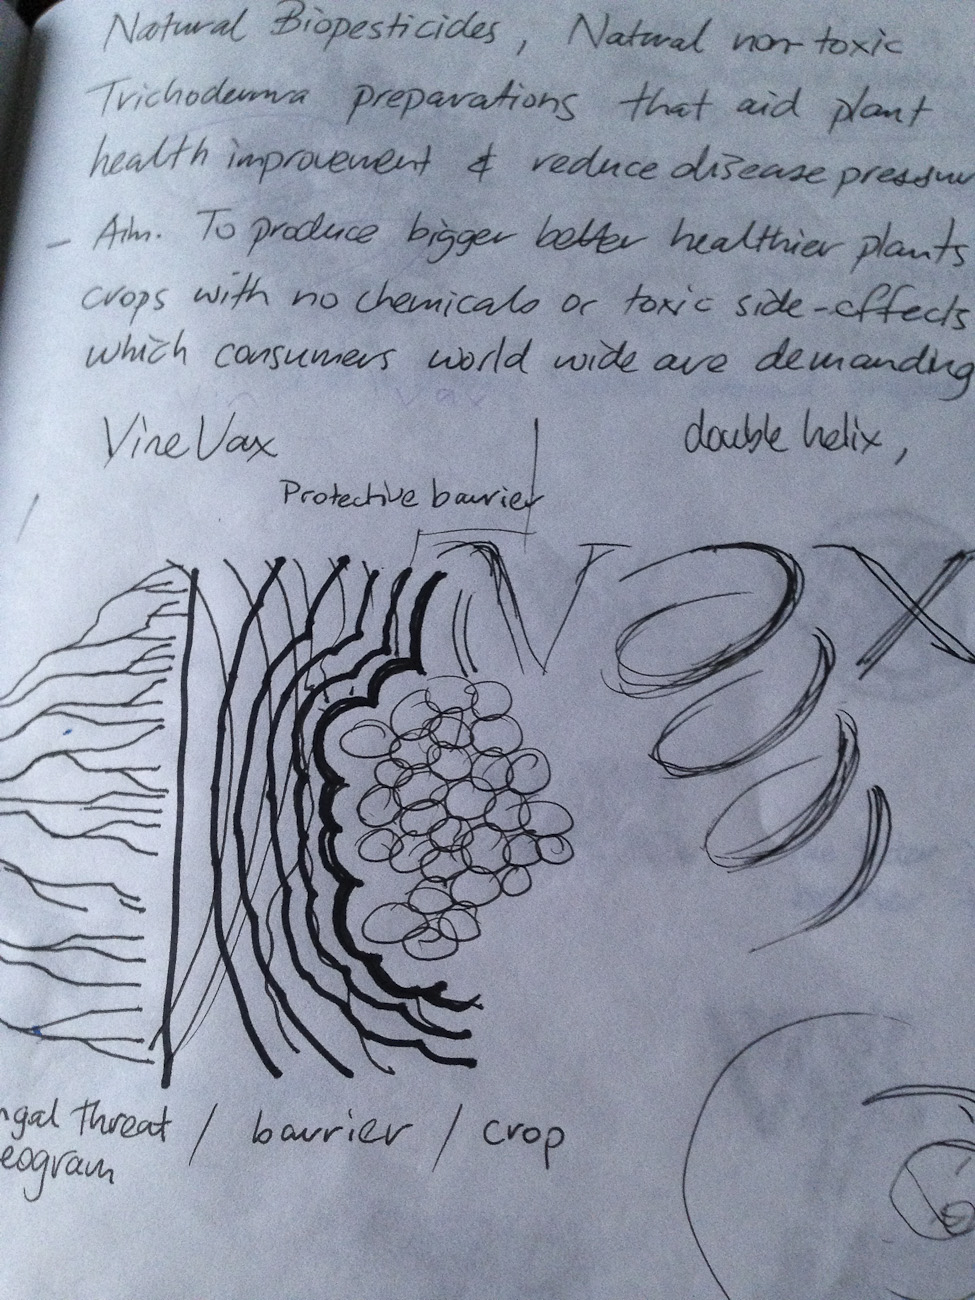 Natural Biopesticides, Natural non toxic
Trichoderma preparations that aid plant
health improvement & reduce disease pressur
- Aim. To produce bigger better healthier plants
crops with no chemicals or toxic side-effects
which consumers world wide are demanding
Vax
VineVax
double helix,
Protective barrier
Vax
ngal threat / barrier / crop
eogram